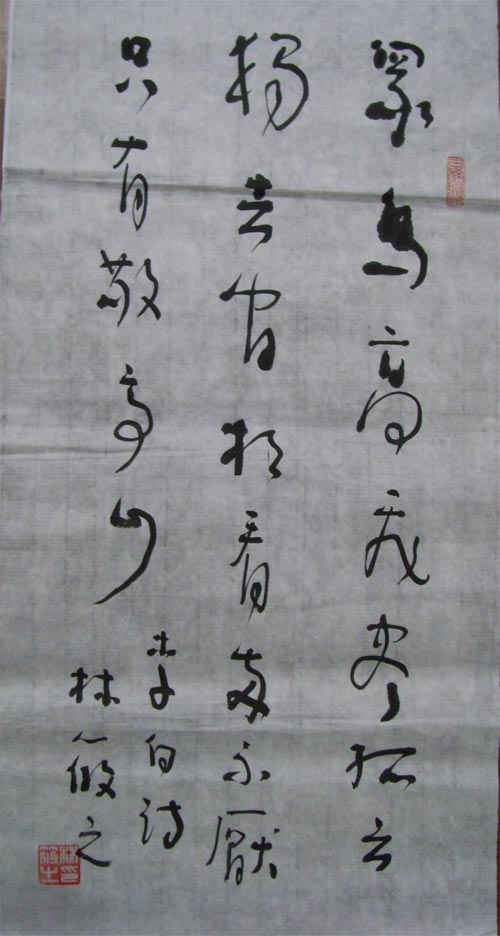 眾鳥高飛盡孤云
獨去閒相看兩不厭
只有敬亭山
李白詩
林筱之